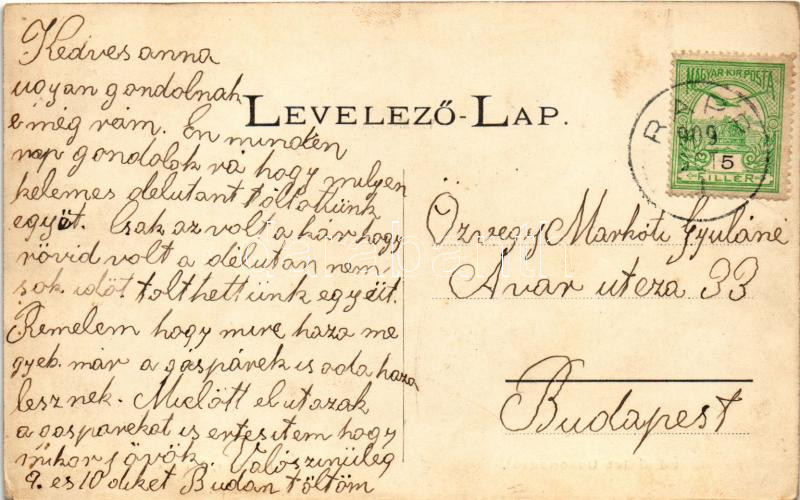 Kedves anna
ugyan gondolnak
e még reám. En minden
nap gondolok rá hogy milyen
kelemes délutant töltöttünk
együt. Csak az volt a kár hogy
rövid volt a délutan nem
sok időt tolthettünk egyeüt.
Remelem hogy mire haza me
gyek már a gáspárék is oda haza
lesznek. Mielött elutazok
a gasparekat is ertesitem hogy
mikor jövök. Valószinüleg
9. es 10 diket Budan töltöm
LEVELEZŐ-LAP.
MAGYAR KIR. POSTA
909
5
FILLÉR
Özvegy Markóti Gyuláné
Avar uteza 33
Budapest
darabanth